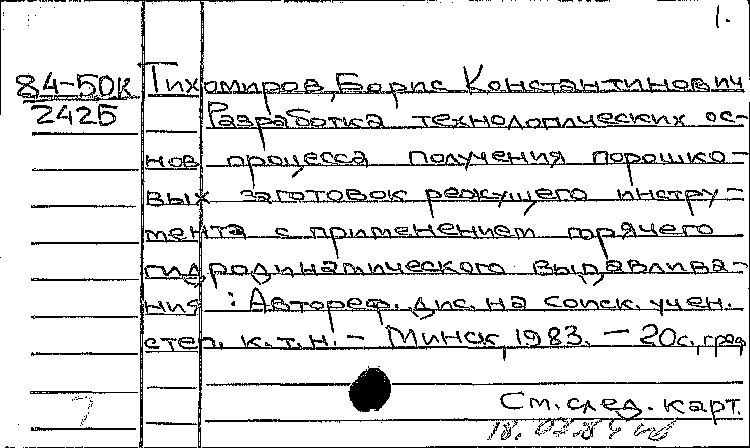 1.
84-50к Тихомиров, Борис Константинович
2425 Разработка технологических ос-
нов процесса получения порошко-
вых заготовок режущего инстру-
мента с применением горячего
гидродинамического выдавлива-
ния : Автореф. дис. на соиск. учен.
степ. к.т.н. - Минск, 1983. - 20с, граф
См. след. карт.